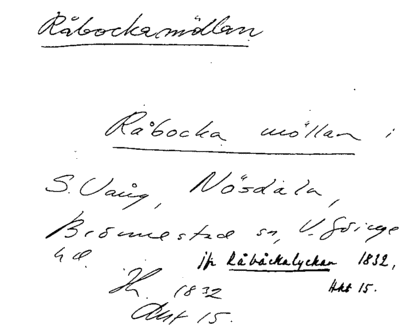 Råbockamöllan
Råbocka möllan i
S. Vång, Nösdala,
Brönnestad sn, V. Göinge
hd.
jfr Råbäckalyckan 1832,
Akt 15.
1832
Akt 15.